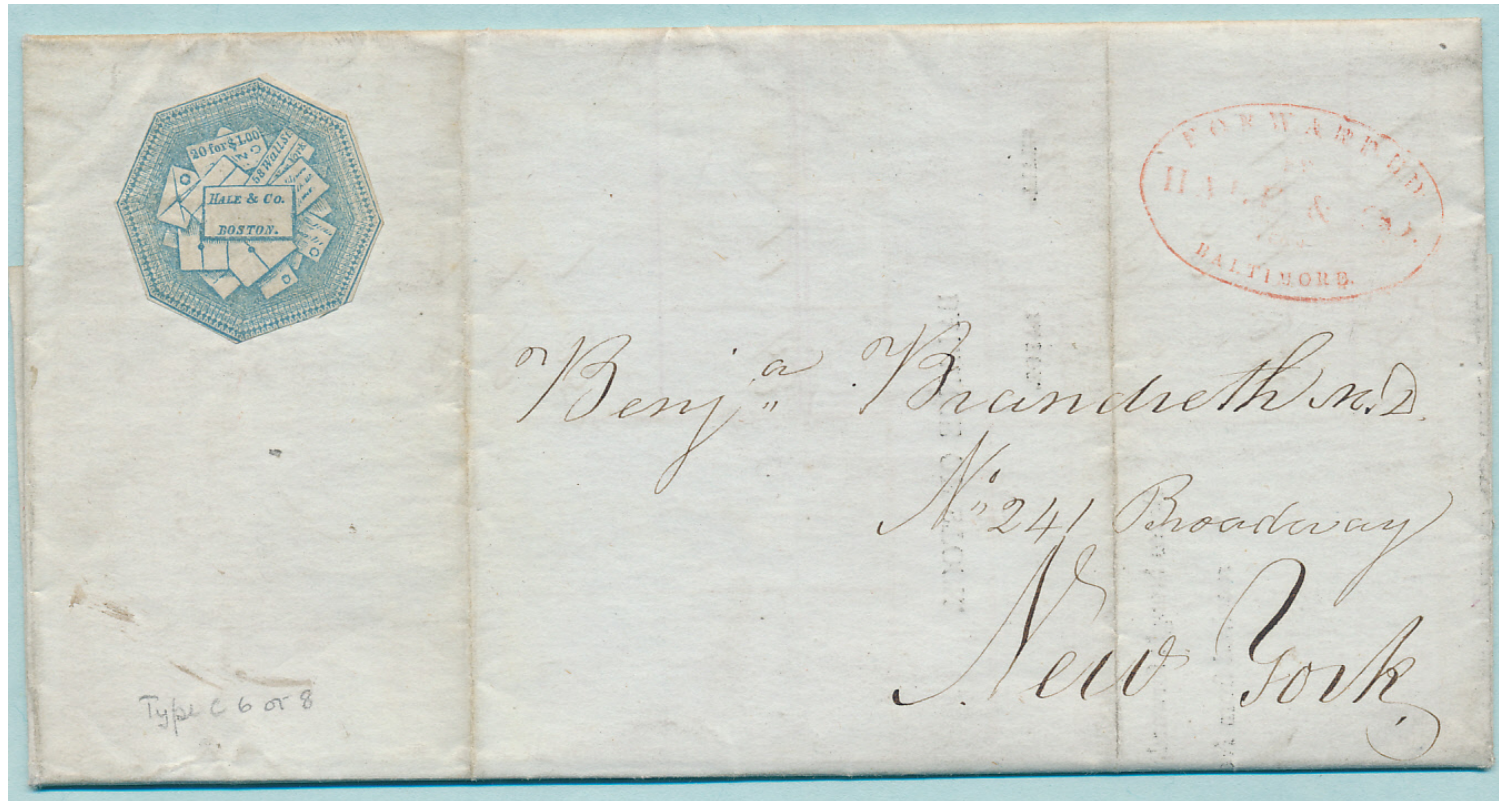 20 for $1.00
58 Wall St.
New York
HALE & CO.
BOSTON.
FORWARDED
BY
HALE & Co.
BALTIMORE.
Benjª Brandreth M.D.
Nº 241 Broadway
New York
Type C 6 or 8